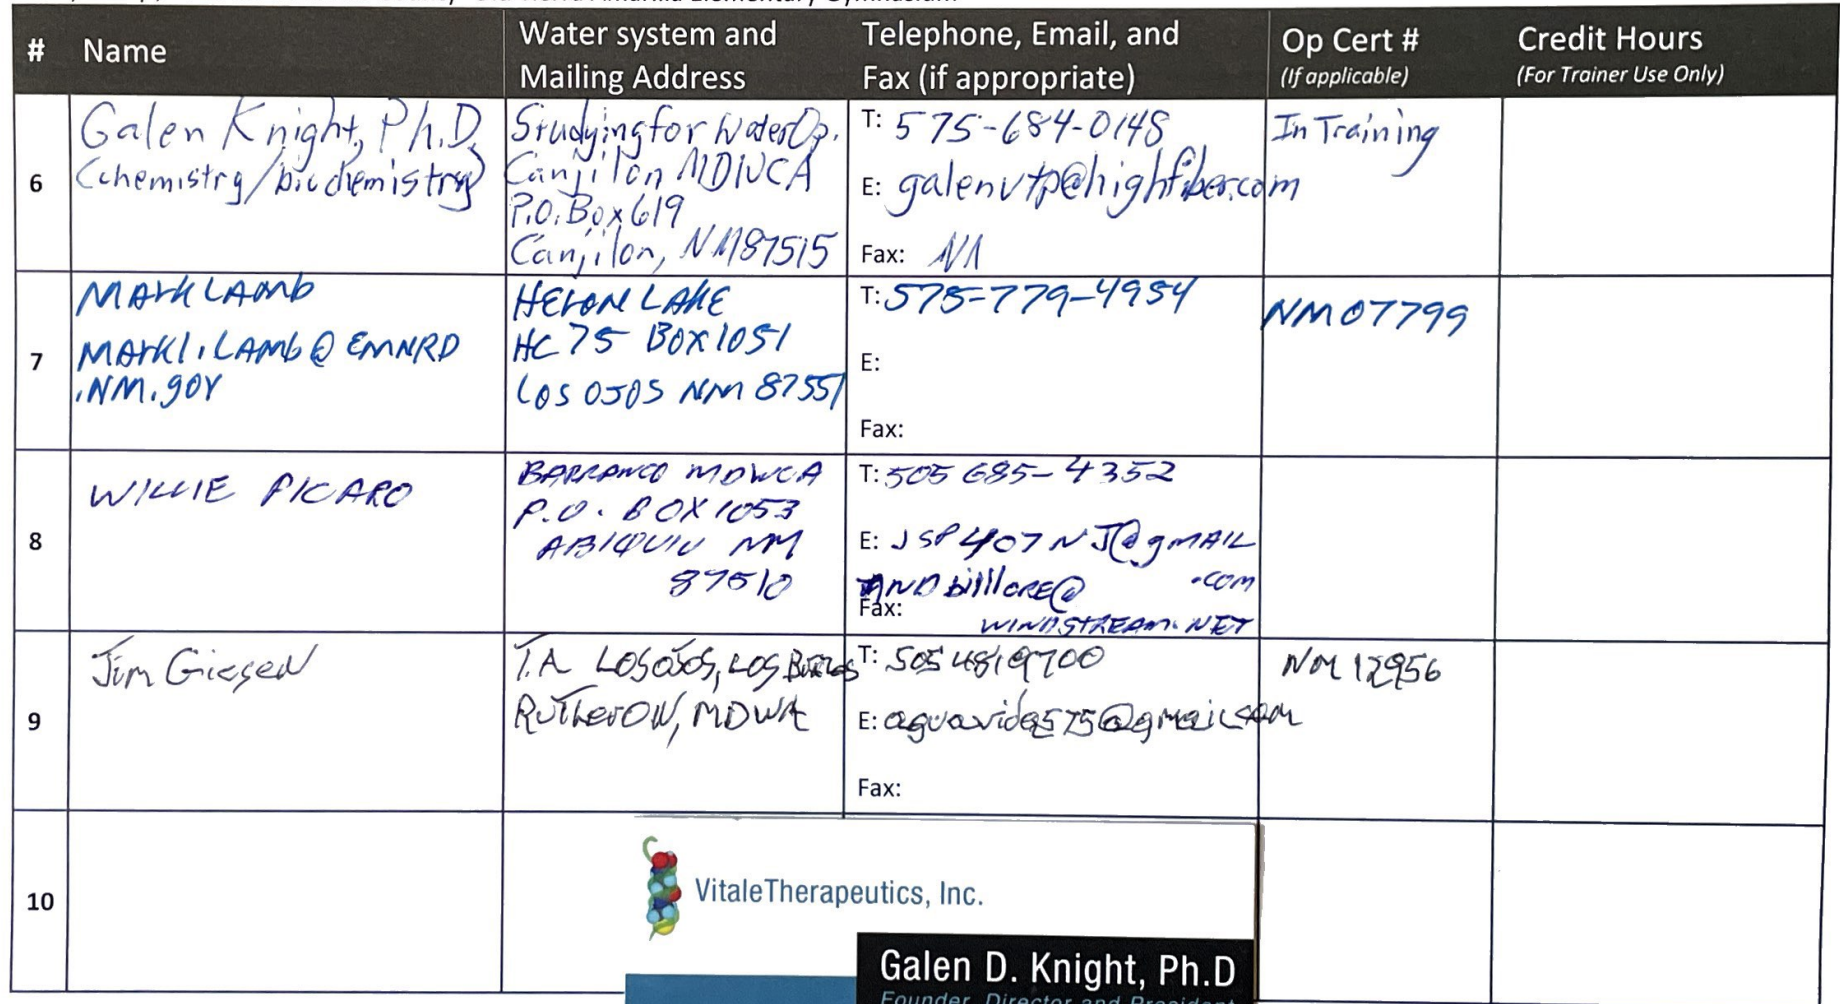 # Name Water system and Mailing Address Telephone, Email, and Fax (if appropriate) Op Cert # (If applicable) Credit Hours (For Trainer Use Only)
6
Galen Knight, Ph.D.
(chemistry/biochemistry)
Studying for Water Op.
Canjilon MDWCA
P.O. Box 619
Canjilon, NM 87515
T: 575-684-0148
E: galenvtp@highfiber.com
Fax: NA
In Training
7
Mark LAmb
MArkl.LAmb@EMNRD
.NM.gov
HEron LAKE
HC 75 Box 1051
Los OJOS NM 87551
T: 575-779-4954
E:
Fax:
NM07799
8
WILLIE PICARO
BARRANCO MDWCA
P.O. BOX 1053
ABIQUIU NM
87510
T: 505 685-4352
E: JSP407NJ@gMAIL
.com
AND billlore@
Fax:
WINDSTREAM.NET
9
Jim Giesen
T.A. LOS OJOS, LOS
RUTHerON, MDWA
T: 505 4819700
E: aguavida575@gmail.com
Fax:
NM 12956
10
VitaleTherapeutics, Inc.
Galen D. Knight, Ph.D
Founder, Director and President